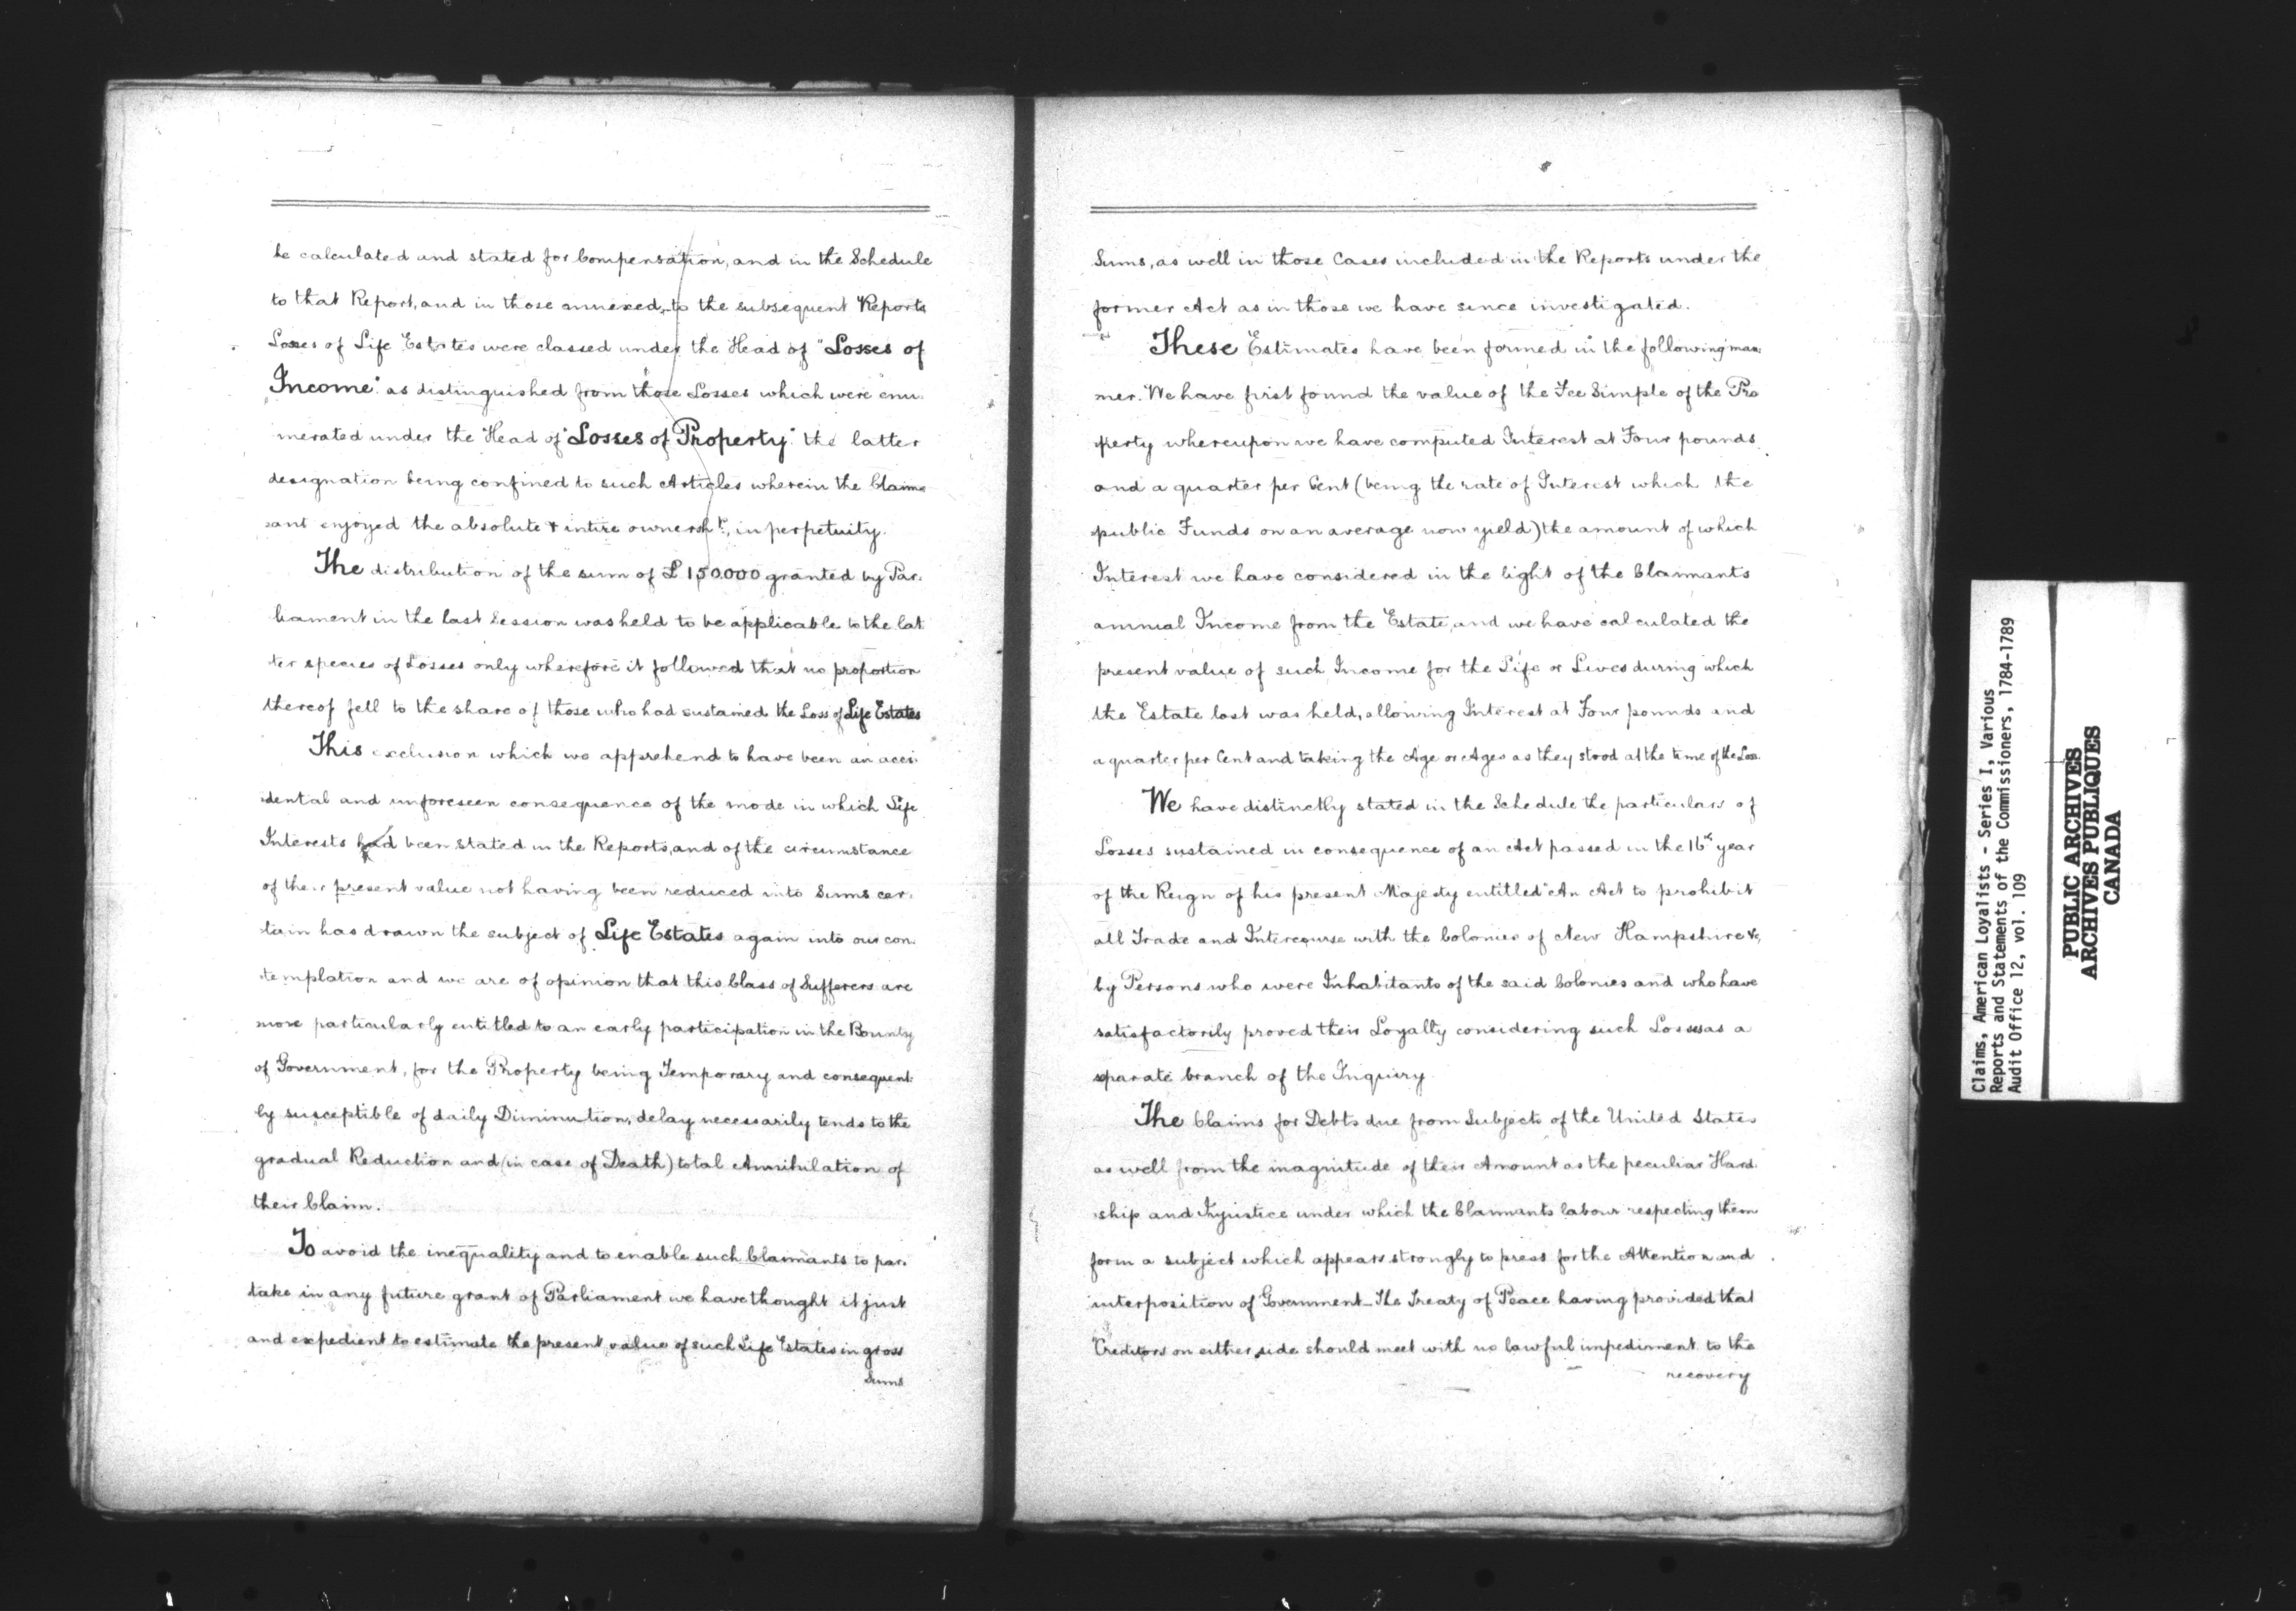 be calculated and stated for Compensation, and in the Schedule
to that Report, and in those annexed, to the subsequent Reports
Losses of Life Estates were classed under the Head of "Losses of
Income" as distinguished from those Losses which were enu-
merated under the Head of "Losses of Property" the latter
designation being confined to such Articles wherein the Claim-
ant enjoyed the absolute & intire ownersh.p, in perpetuity.
The distribution of the sum of £150000 granted by Par-
liament in the last Session was held to be applicable to the lat
ter species of Losses only wherefore it followed that no proportion
thereof fell to the share of those who had sustained the Loss of Life Estates
This exclusion which we apprehend to have been an acci-
dental and unforeseen consequence of the mode in which Life
Interests had been stated in the Reports, and of the circumstance
of their present value not having been reduced into Sums cer-
tain has drawn the subject of Life Estates again into our con-
templation and we are of opinion that this Class of Sufferers are
more particularly entitled to an early participation in the Bounty
of Government, for the Property being Temporary and consequent-
ly susceptible of daily Diminution, delay necessarily tends to the
gradual Reduction and (in case of Death) total Annihilation of
their Claim.
To avoid the inequality and to enable such Claimants to par-
take in any future grant of Parliament we have thought it just
and expedient to estimate the present value of such Life Estates in gross
Sums
Sums, as well in those Cases included in the Reports under the
former Act as in those we have since investigated.
These Estimates have been formed in the following man-
ner. We have first found the value of the Fee Simple of the Pro
perty whereupon we have computed Interest at Four pounds
and a quarter per Cent (being the rate of Interest which the
public Funds on an average now yield) the amount of which
Interest we have considered in the light of the Claimants
annual Income from the Estate, and we have calculated the
present value of such Income for the Life or Lives during which
the Estate lost was held, allowing Interest at Four pounds and
a quarter per Cent and taking the Age or Ages as they stood at the time of the Loss.
We have distinctly stated in the Schedule the particulars of
Losses sustained in consequence of an Act passed in the 16th year
of the Reign of his present Majesty entitled "An Act to prohibit
all Trade and Intercourse with the Colonies of New Hampshire &c,
by Persons who were Inhabitants of the said Colonies and who have
satisfactorily proved their Loyalty considering such Losses as a
separate branch of the Inquiry
The Claims for Debts due from Subjects of the United States
as well from the magnitude of their Amount as the peculiar Hard-
ship and Injustice under which the Claimants labour respecting them
form a subject which appears strongly to press for the Attention and
interposition of Government_ The Treaty of Peace having provided that
Creditors on either side should meet with no lawful impediment to the
recovery
Claims, American Loyalists - Series I, Various
Reports and Statements of the Commissioners, 1784-1789
Audit Office 12, vol. 109
PUBLIC ARCHIVES
ARCHIVES PUBLIQUES
CANADA